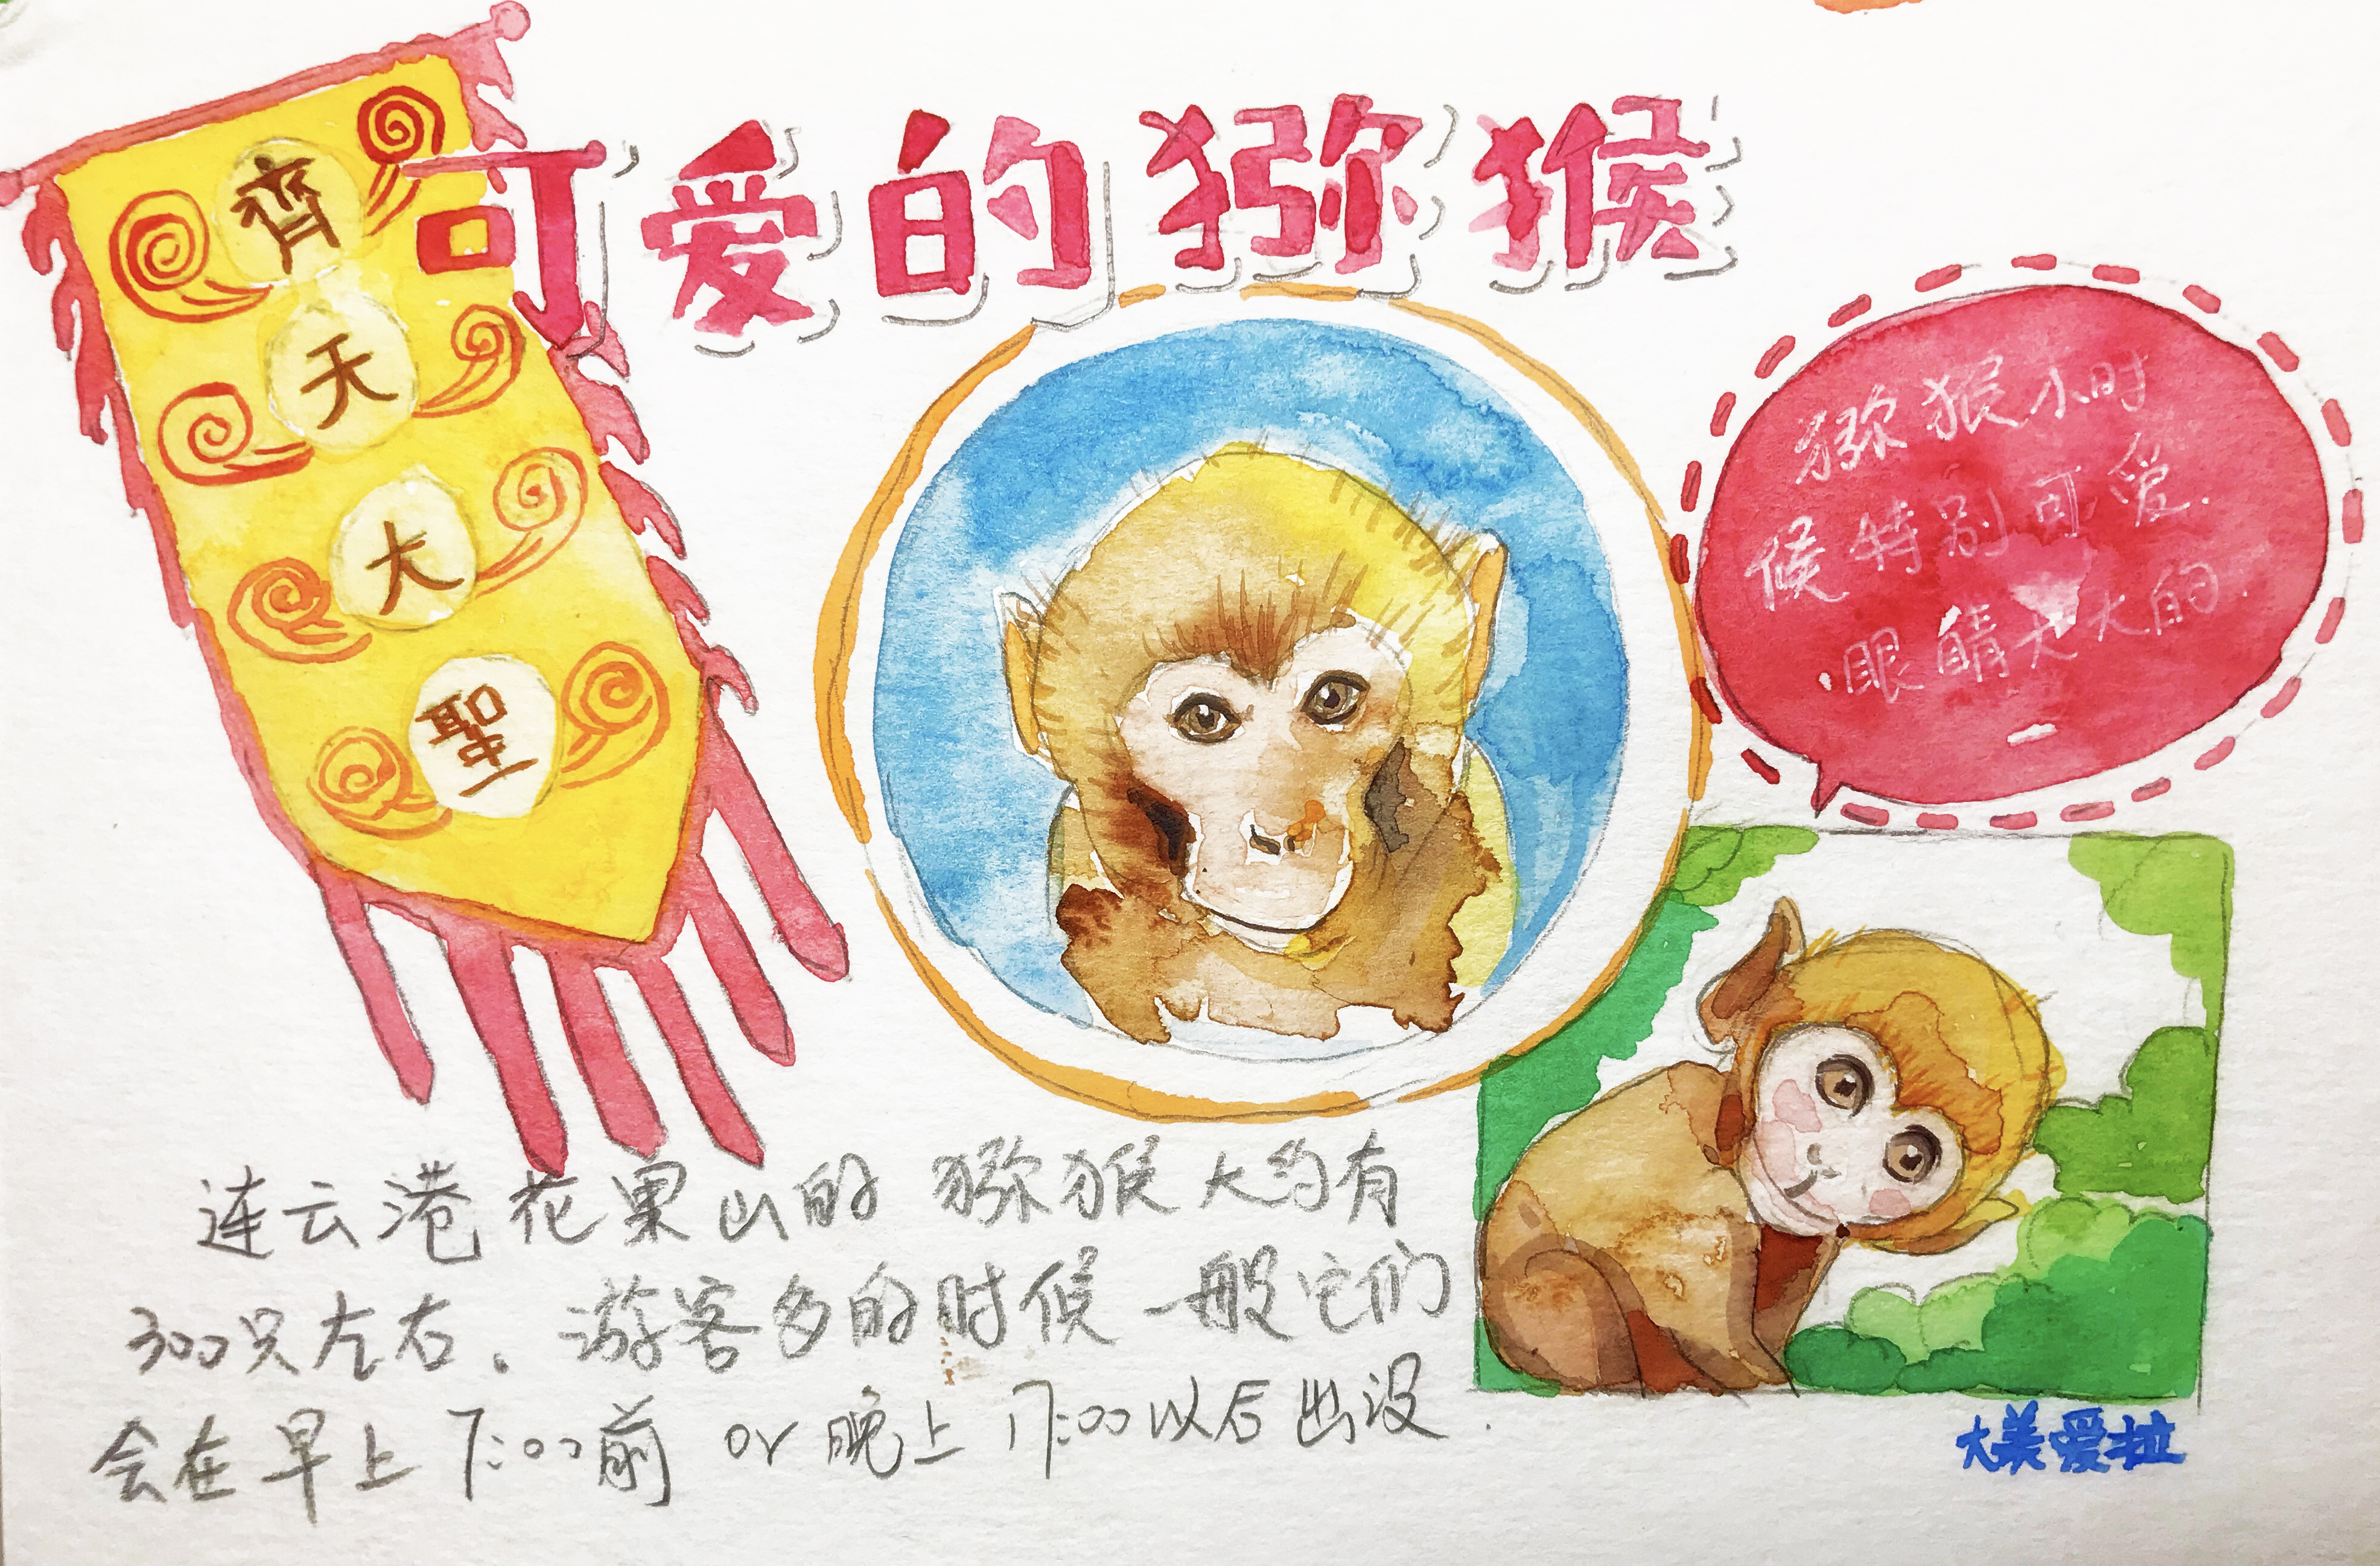 可爱的猕猴
齊
天
大
聖
猕猴小时
候特别可爱.
眼睛大大的.
连云港花果山的猕猴大约有
300只左右. 游客多的时候一般它们
会在早上7:00前 or 晚上17:00以后出没.
大美爱拉